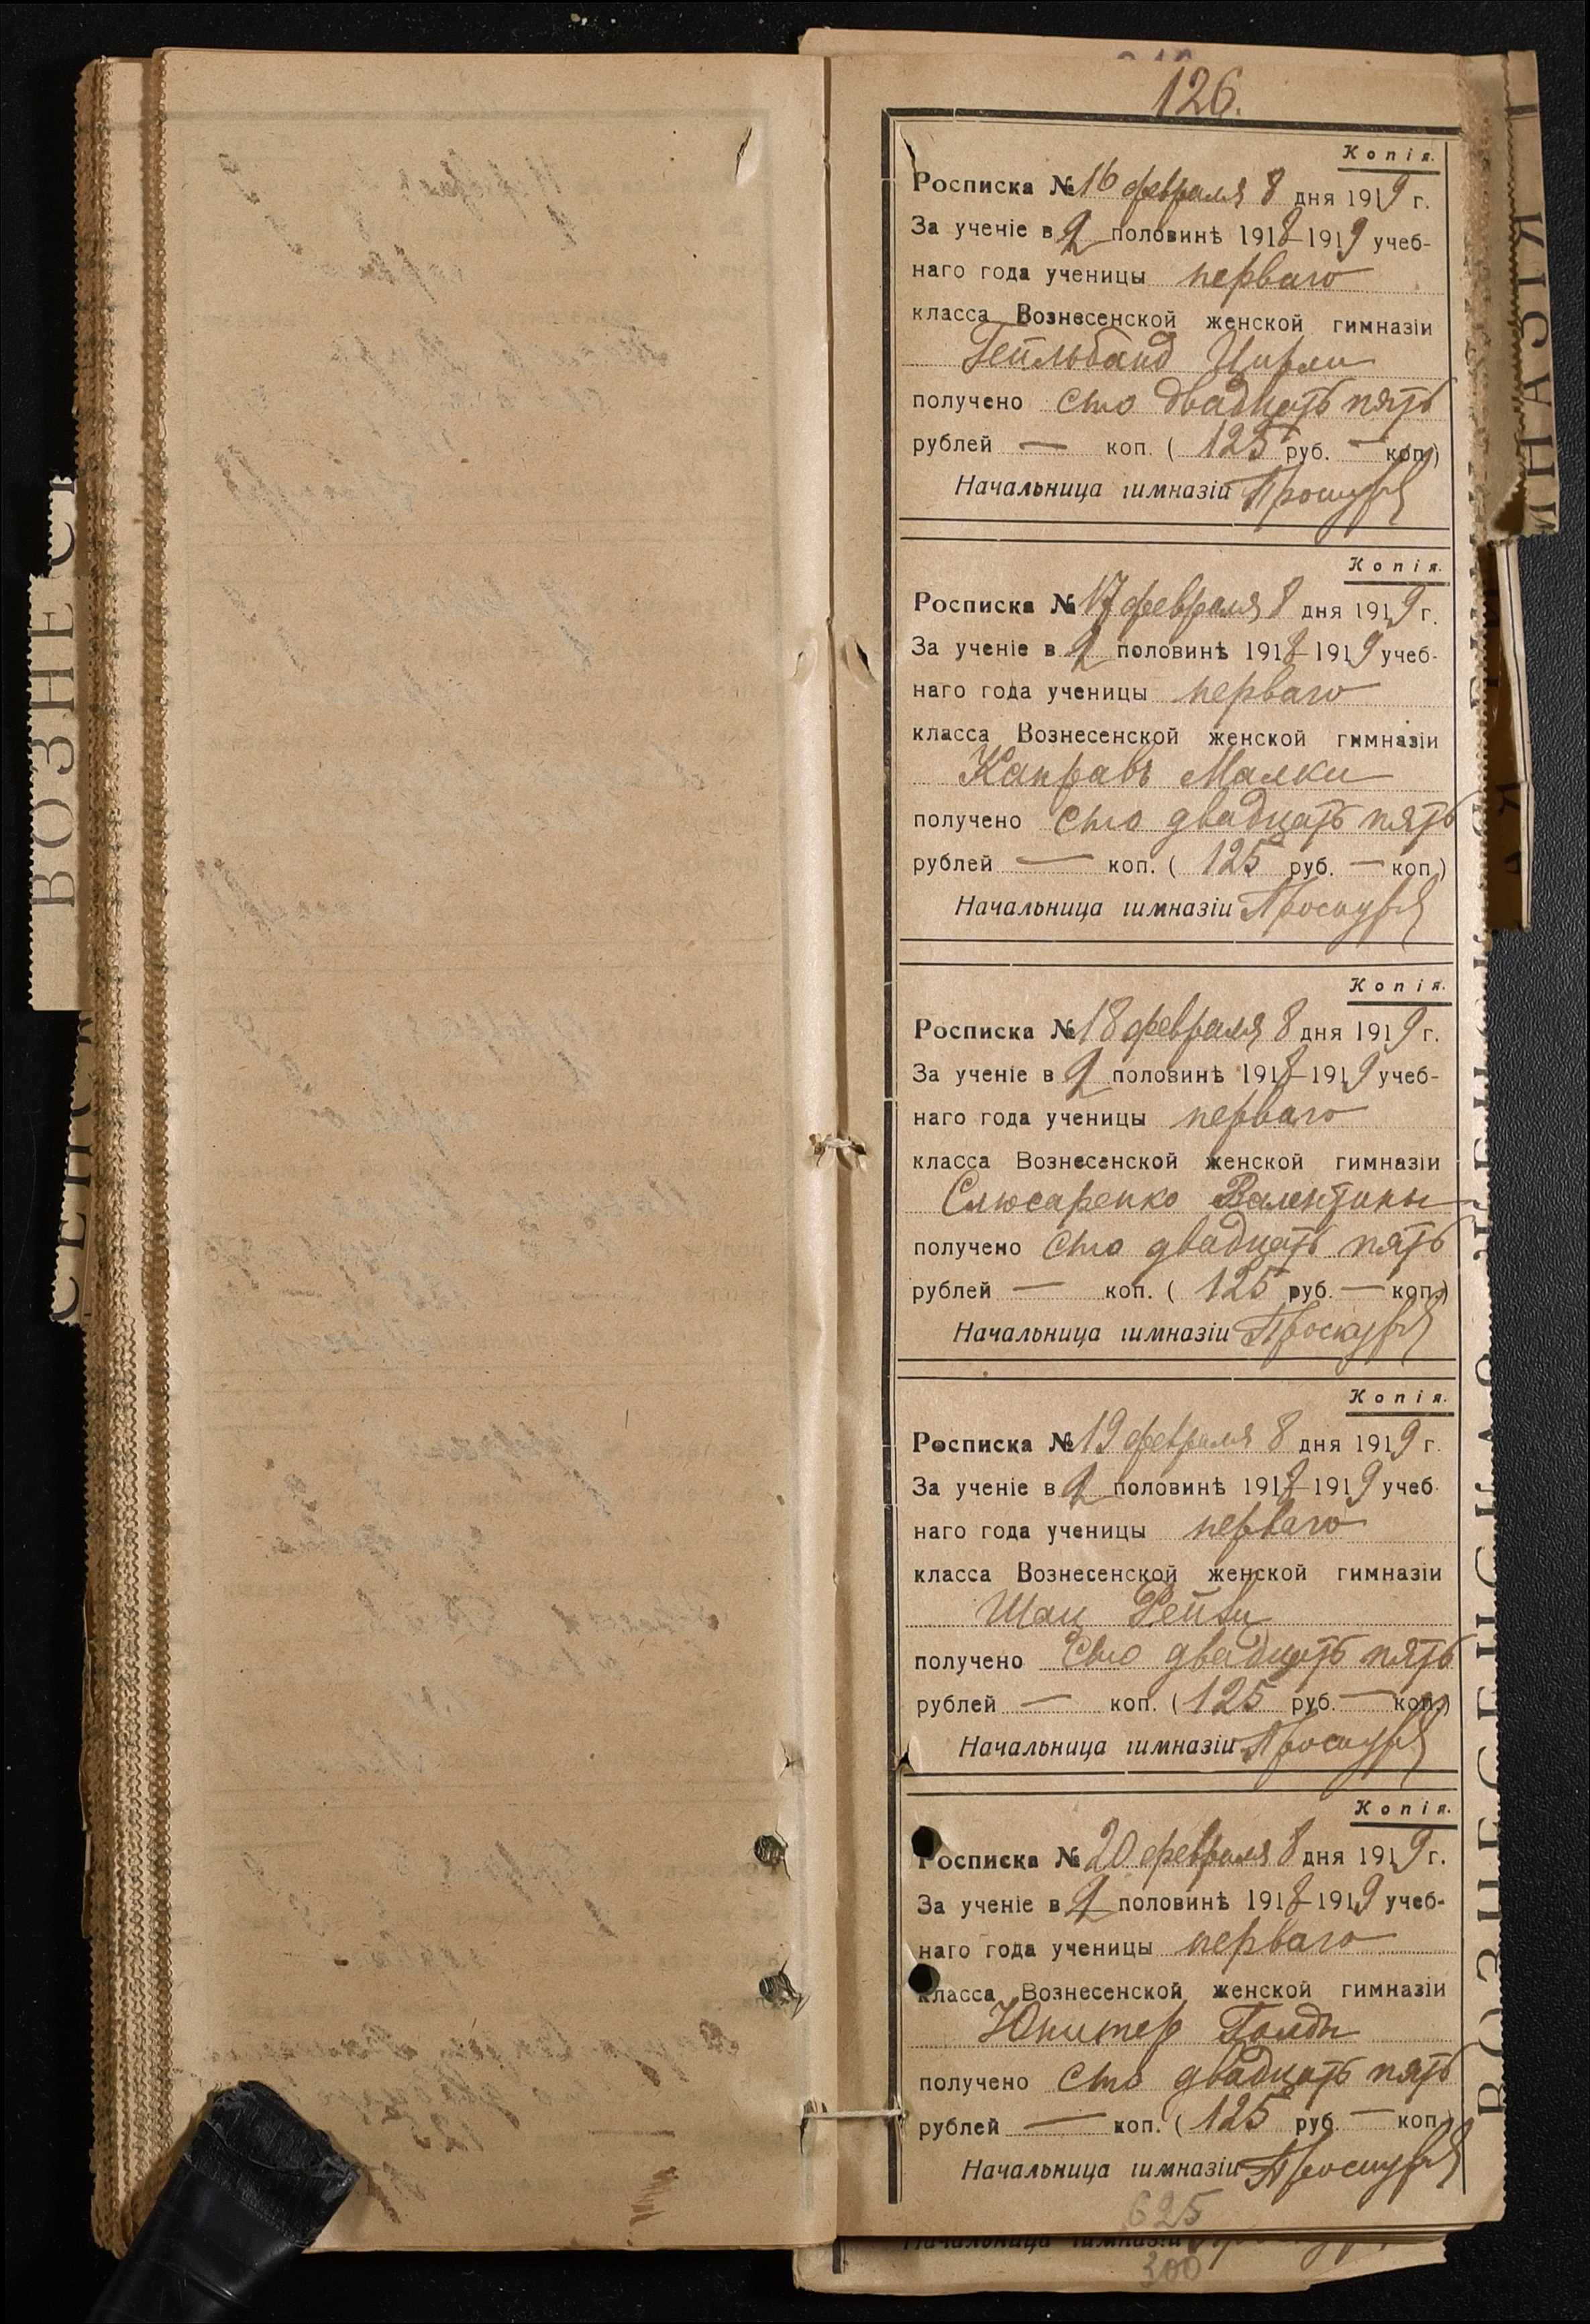 126.
Копія.
Росписка № 16 февраля 8 дня 1919 г.
За ученіе в 2 половинѣ 1918-1919 учеб-
наго года ученицы перваго
класса Вознесенской женской гимназіи
Гейльбанд Цирли
получено сто двадцать пять
рублей — коп. ( 125 руб. — коп.)
Начальница гимназіи
Копія.
Росписка № 17 февраля 8 дня 1919 г.
За ученіе в 2 половинѣ 1918-1919 учеб-
наго года ученицы перваго
класса Вознесенской женской гимназіи
Каправъ Малки
получено сто двадцать пять
рублей — коп. ( 125 руб. — коп.)
Начальница гимназіи
Копія.
Росписка № 18 февраля 8 дня 1919 г.
За ученіе в 2 половинѣ 1918-1919 учеб-
наго года ученицы перваго
класса Вознесенской женской гимназіи
Слюсаренко Валентины
получено сто двадцать пять
рублей — коп. ( 125 руб. — коп.)
Начальница гимназіи
Копія.
Росписка № 19 февраля 8 дня 1919 г.
За ученіе в 2 половинѣ 1918-1919 учеб
наго года ученицы перваго
класса Вознесенской женской гимназіи
Шац Рейзи
получено сто двадцать пять
рублей — коп. ( 125 руб. — коп.)
Начальница гимназіи
Копія.
Росписка № 20 февраля 8 дня 1919 г.
За ученіе в 2 половинѣ 1918-1919 учеб-
наго года ученицы перваго
класса Вознесенской женской гимназіи
Юпитер Голды
получено сто двадцать пять
рублей — коп. ( 125 руб. — коп.)
Начальница гимназіи
625
Начальница гимназіи
300
ВОЗНЕС